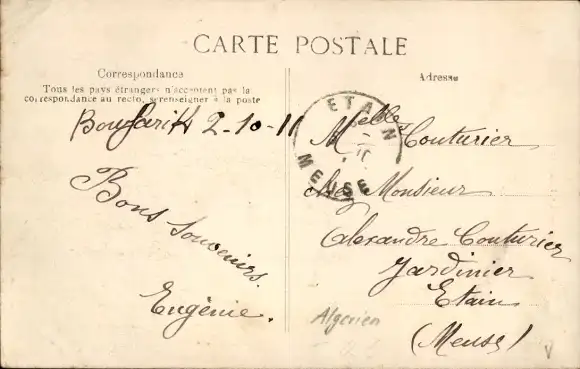 CARTE POSTALE
Correspondance
Tous les pays étrangers n'acceptent pas la
correspondance au recto, se renseigner à la poste
Boufarik 2-10-11
Bons Souvenirs.
Eugénie.
Adresse
ETAIN
MEUSE
Melle Couturier
chez Monsieur
Alexandre Couturier
Jardinier
Etain
(Meuse)
Algerien